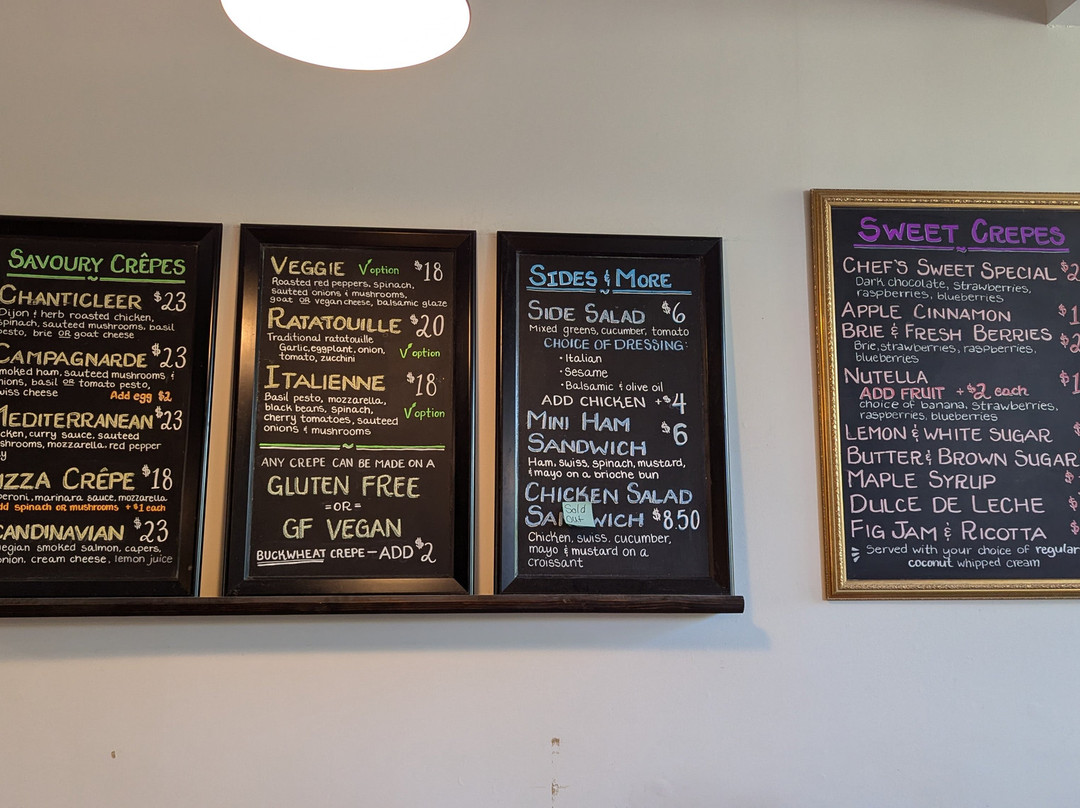 SAVOURY CRÊPES
CHANTICLEER $23
Dijon & herb roasted chicken,
spinach, sauteed mushrooms, basil
pesto, brie OR goat cheese
CAMPAGNARDE $23
moked ham, sauteed mushrooms &
nions, basil OR tomato pesto,
wiss cheese
Add egg $2
MEDITERRANEAN $23
cken, curry sauce, sauteed
shrooms, mozzarella, red pepper
IZZA CRÊPE $18
peroni, marinara sauce, mozzarella
dd spinach OR mushrooms +$1 each
CANDINAVIAN $23
egian smoked salmon, capers,
onion, cream cheese, lemon juice
VEGGIE V option $18
Roasted red peppers, spinach,
sauteed onions & mushrooms,
goat OR vegan cheese, balsamic glaze
RATATOUILLE $20
Traditional ratatouille
Garlic, eggplant, onion,
tomato, zucchini
V option
ITALIENNE $18
Basil pesto, mozzarella,
black beans, spinach,
cherry tomatoes, sauteed
onions & mushrooms
V option
ANY CREPE CAN BE MADE ON A
GLUTEN FREE
=OR=
GF VEGAN
BUCKWHEAT CREPE — ADD $2
SIDES & MORE
SIDE SALAD $6
Mixed greens, cucumber, tomato
CHOICE OF DRESSING:
• Italian
• Sesame
• Balsamic & olive oil
ADD CHICKEN +$4
MINI HAM $6
SANDWICH
Ham, swiss, spinach, mustard,
& mayo on a brioche bun
CHICKEN SALAD
SANDWICH $8.50
Sold
out
Chicken, swiss, cucumber,
mayo & mustard on a
croissant
SWEET CREPES
CHEF'S SWEET SPECIAL $2
Dark chocolate, strawberries,
raspberries, blueberries
APPLE CINNAMON $1
BRIE & FRESH BERRIES $2
Brie, strawberries, raspberries,
blueberries
NUTELLA $1
ADD FRUIT +$2 each
choice of banana, strawberries,
raspberries, blueberries
LEMON & WHITE SUGAR $
BUTTER & BROWN SUGAR
MAPLE SYRUP $
DULCE DE LECHE $
FIG JAM & RICOTTA $
Served with your choice of regular
coconut whipped cream